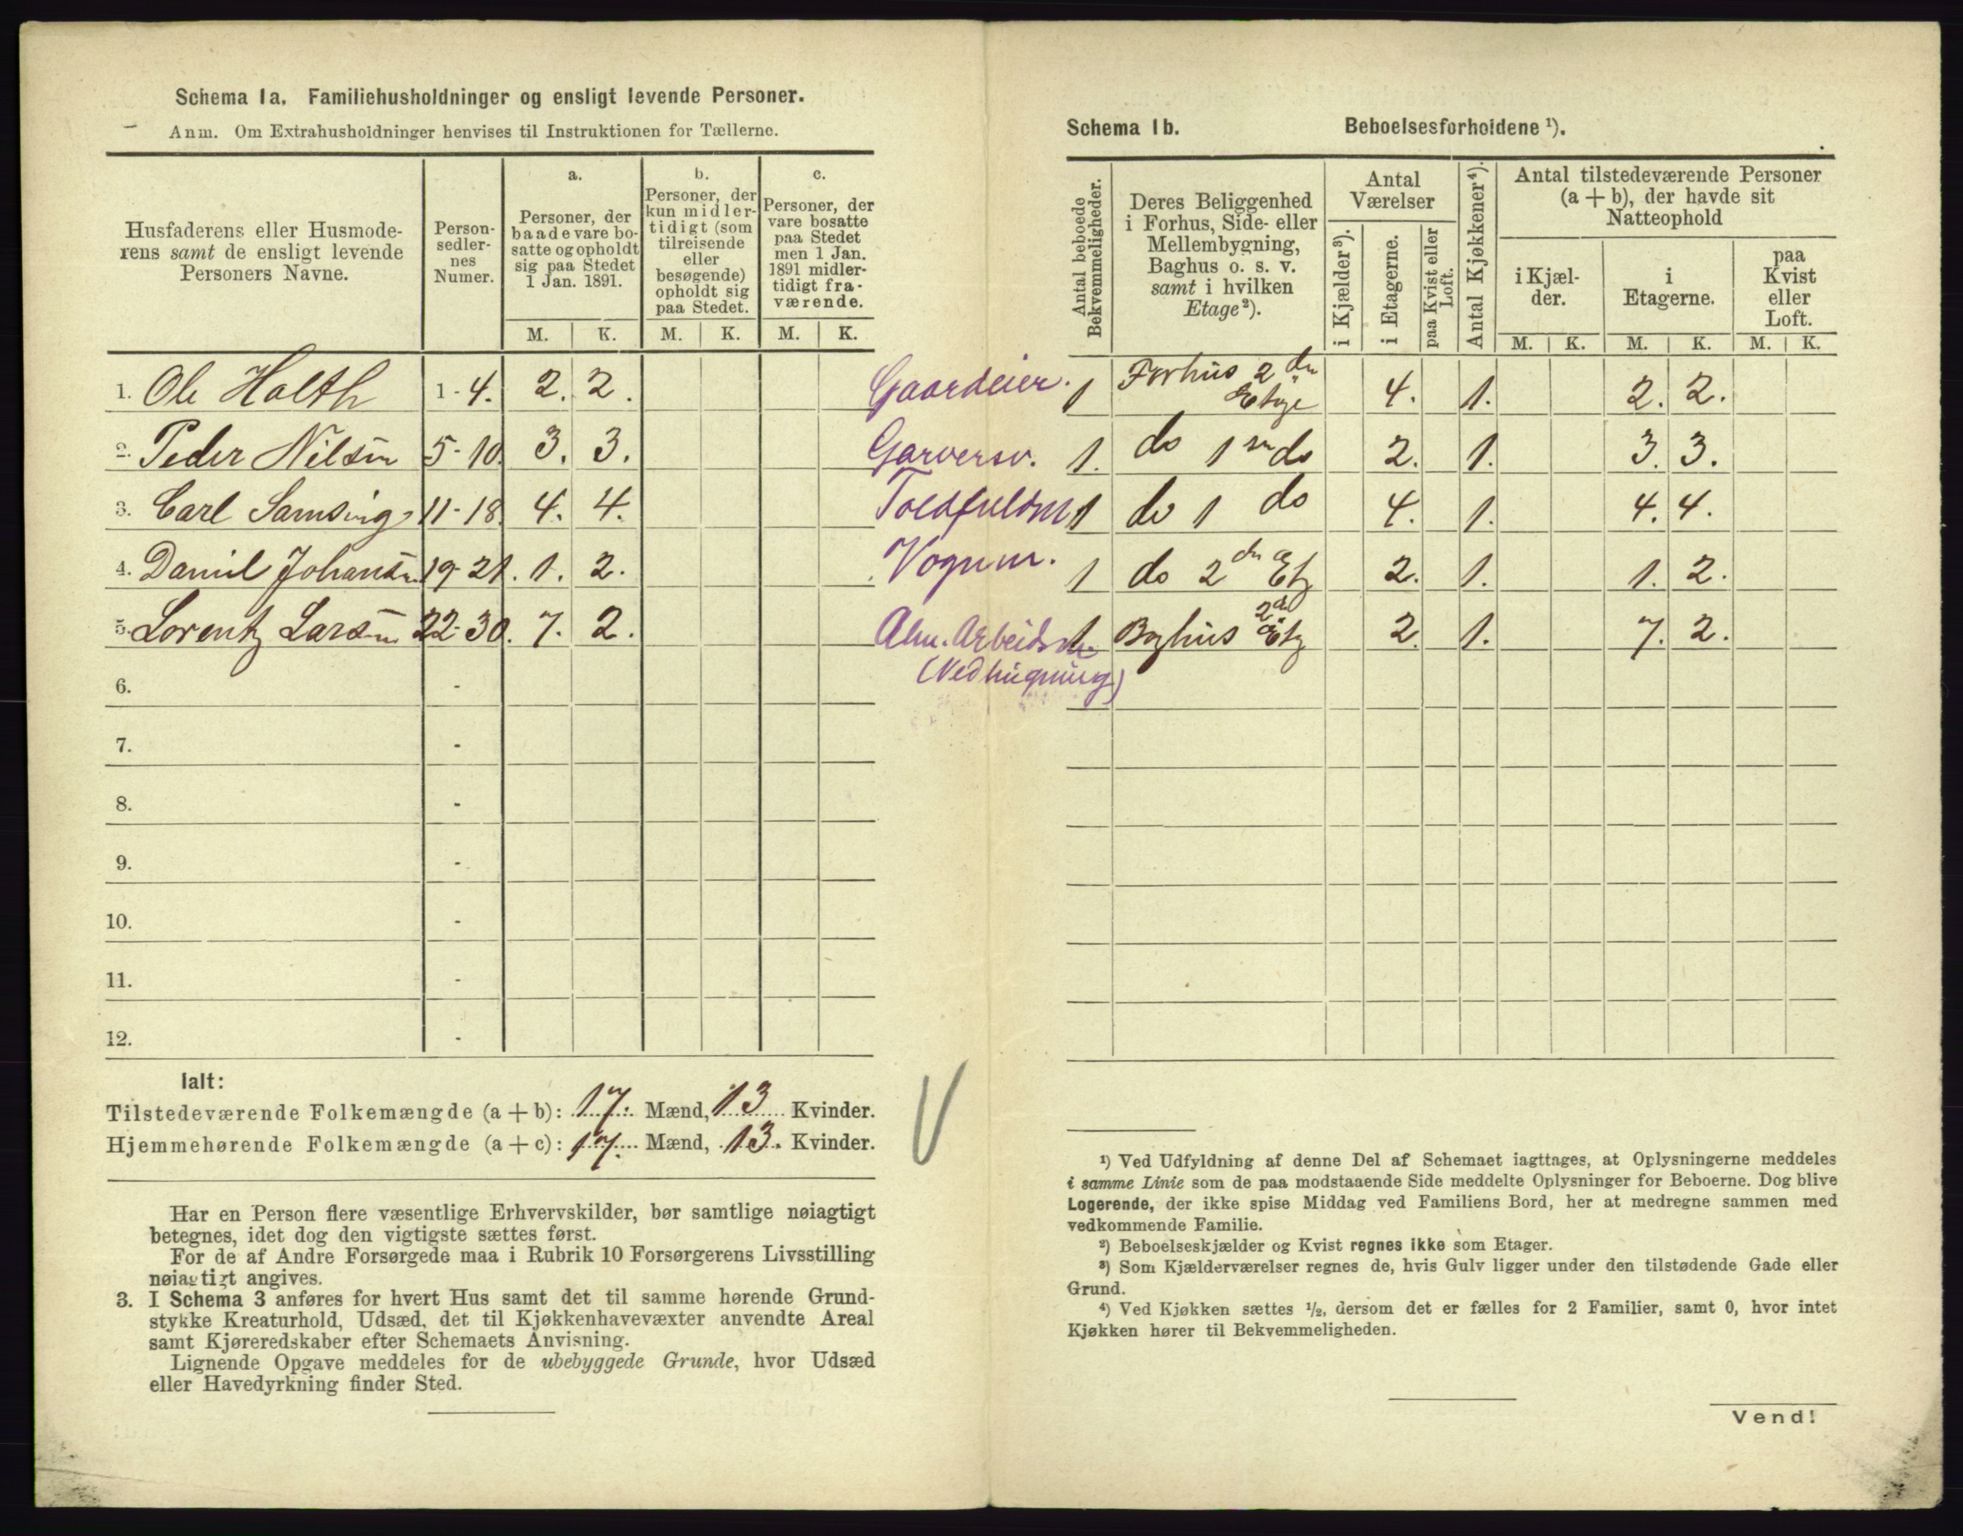 Schema 1a. Familiehusholdninger og ensligt levende Personer.
Anm. Om Extrahusholdninger henvises til Instruktionen for Tællerne.
Husfaderens eller Husmoderens samt de ensligt levende Personers Navne.
Personsedlernes Numer.
a. Personer, der baade vare bosatte og opholdt sig paa Stedet 1 Jan. 1891.
b. Personer, der kun midlertidigt (som tilreisende eller besøgende) opholdt sig paa Stedet.
c. Personer, der vare bosatte paa Stedet men 1 Jan. 1891 midlertidigt fraværende.
M. K. M. K. M. K.
1. Ole Holth 1-4. 2. 2.
2. Peder Nilsen 5-10. 3. 3.
3. Carl Samsing 11-18. 4. 4.
4. Daniel Johansen 19-21. 1. 2.
5. Lorentz Larsen 22-30. 7. 2.
6. -
7. -
8. -
9. -
10. -
11. -
12. -
Ialt:
Tilstedeværende Folkemængde (a+b): 17. Mænd, 13 Kvinder.
Hjemmehørende Folkemængde (a+c): 17. Mænd, 13. Kvinder.
Har en Person flere væsentlige Erhvervskilder, bør samtlige nøiagtigt
betegnes, idet dog den vigtigste sættes først.
For de af Andre Forsørgede maa i Rubrik 10 Forsørgerens Livsstilling
nøiagtigt angives.
3. I Schema 3 anføres for hvert Hus samt det til samme hørende Grund-
stykke Kreaturhold, Udsæd, det til Kjøkkenhavevæxter anvendte Areal
samt Kjøreredskaber efter Schemaets Anvisning.
Lignende Opgave meddeles for de ubebyggede Grunde, hvor Udsæd
eller Havedyrkning finder Sted.
Schema 1b. Beboelsesforholdene ¹).
Antal beboede Bekvemmeligheder.
Deres Beliggenhed i Forhus, Side- eller Mellembygning, Baghus o. s. v. samt i hvilken Etage²).
Antal Værelser
i Kjælder³).
i Etagerne.
paa Kvist eller Loft.
Antal Kjøkkener⁴).
Antal tilstedeværende Personer (a+b), der havde sit Natteophold
i Kjælder.
i Etagerne.
paa Kvist eller Loft.
M. K. M. K. M. K.
Gaardeier. 1 Forhus 2den Etage 4. 1. 2. 2.
Garversv. 1. do 1ste do 2. 1. 3. 3.
Toldfuldm 1 do 1 do 4. 1. 4. 4.
Vognm. 1 do 2den Etg 2. 1. 1. 2.
Alm. Arbeidsm. 1. Baghus 2den Etg 2. 1. 7. 2.
(Vedhugning)
¹) Ved Udfyldning af denne Del af Schemaet iagttages, at Oplysningerne meddeles
i samme Linie som de paa modstaaende Side meddelte Oplysninger for Beboerne. Dog blive
Logerende, der ikke spise Middag ved Familiens Bord, her at medregne sammen med
vedkommende Familie.
²) Beboelseskjælder og Kvist regnes ikke som Etager.
³) Som Kjælderværelser regnes de, hvis Gulv ligger under den tilstødende Gade eller
Grund.
⁴) Ved Kjøkken sættes ½, dersom det er fælles for 2 Familier, samt 0, hvor intet
Kjøkken hører til Bekvemmeligheden.
Vend!